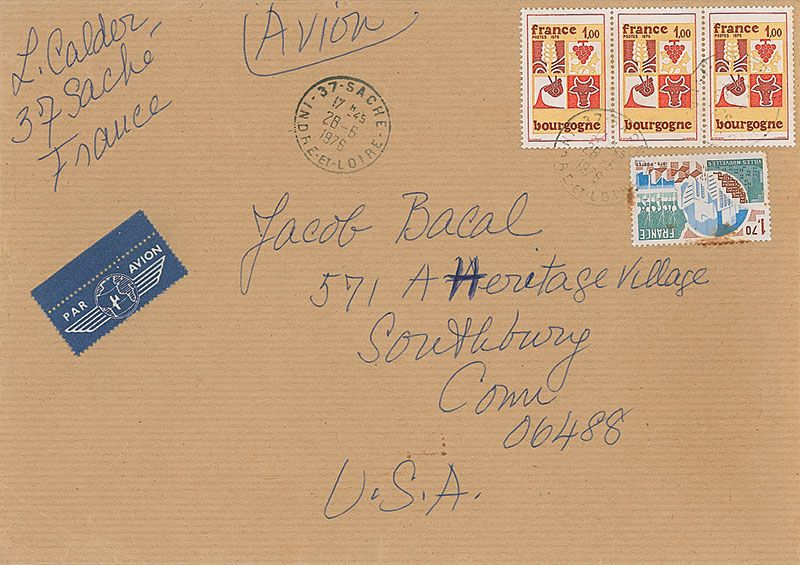 L. Calder,
37 Saché,
France
Avion
37-SACHE
INDRE-ET-LOIRE
17 H45
28-6
1976
france 1,00
POSTES 1975
bourgogne
france 1,00
POSTES 1975
bourgogne
france 1,00
POSTES 1975
bourgogne
VILLES NOUVELLES
1,70
FRANCE
1975 POSTES
PAR AVION
Jacob Bacal
571 A Heritage Village
Southbury
Conn
06488
U.S.A.